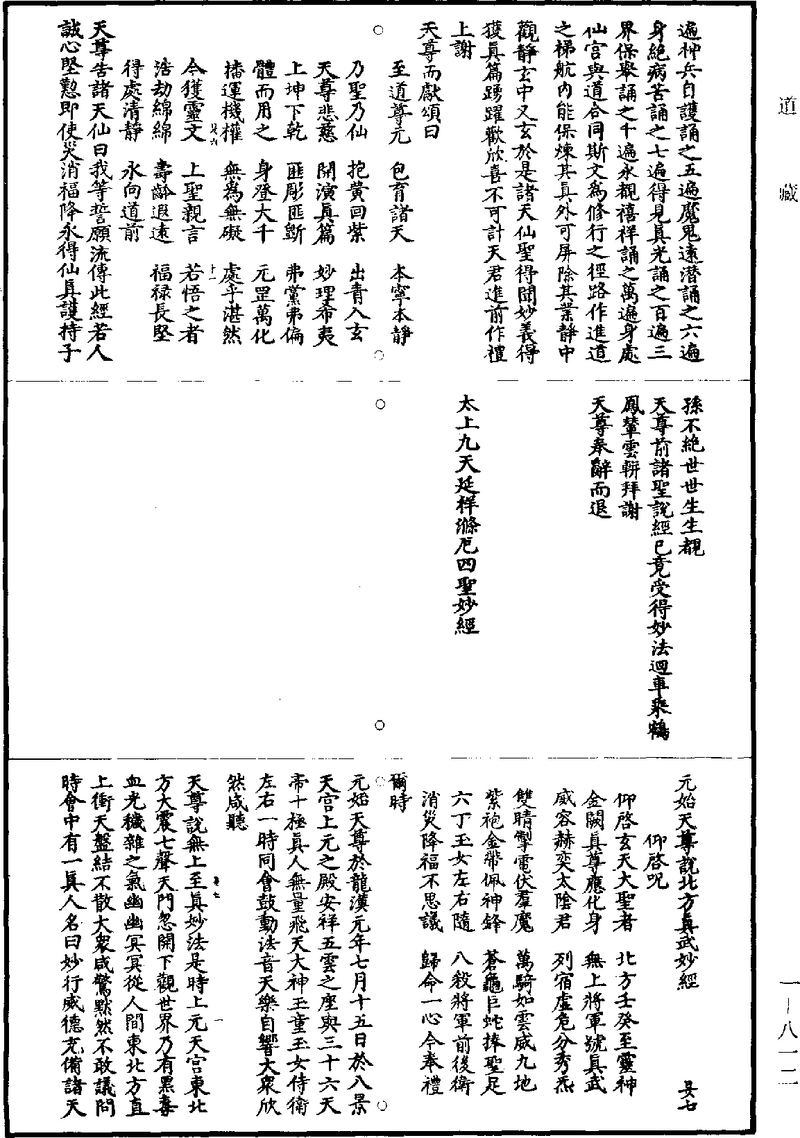 道藏
遍神兵自護誦之五遍魔鬼遠潛誦之六遍
身絕病苦誦之七遍得見真光誦之百遍三
界保舉誦之千遍永覩禧祥誦之萬遍身處
仙宮與道合同斯文為修行之徑路作進道
之梯航内能保煉其真外可屏除其業靜中
觀靜玄中又玄於是諸天仙聖得聞妙義得
獲真篇踴躍歡欣喜不可計天君進前作禮
上謝
天尊而獻頌曰
至道尊元　包育諸天　本寧本靜
乃聖乃仙　抱黄回紫　出青入玄
天尊悲慈　開演真篇　妙理希夷
上坤下乾　匪彫匪斵　弗黨弗偏
體而用之　身登大千　元罡萬化
播運機權　無為無礙　處乎湛然
今獲靈文　上聖親言　若悟之者
浩劫綿綿　壽齡遐遠　福禄長堅
得處清靜　永向道前
天尊告諸天仙曰我等誓願流傳此經若人
誠心堅懃即使災消福降永得仙真護持子
孫不絶世世生生覩
天尊前諸聖說經已竟受得妙法迴車乘鶴
鳳輦雲軿拜謝
天尊奉辭而退
太上九天延祥滌厄四聖妙經
元始天尊說北方真武妙經　
仰啓呪
仰啓玄天大聖者　北方壬癸至靈神
金闕真尊應化身　無上將軍號真武
威容赫奕太陰君　列宿虚危分秀炁
雙睛掣電伏羣魔　萬騎如雲威九地
紫袍金帶佩神鋒　蒼龜巨蛇捧聖足
六丁玉女左右隨　八殺將軍前後衛
消災降福不思議　歸命一心今奉禮
爾時
元始天尊於龍漢元年七月十五日於八景
天宫上元之殿安祥五雲之座與三十六天
帝十極真人無量飛天大神玉童玉女侍衛
左右一時同會鼓動法音天樂自響大衆欣
然咸聽
天尊說無上至真妙法是時上元天宫東北
方大震七聲天門忽開下觀世界乃有黑毒
血光穢雜之氣幽幽冥冥從人間東北方直
上衝天盤結不散大衆咸驚黙然不敢議問
時會中有一真人名曰妙行威德充備諸天
一—八一二